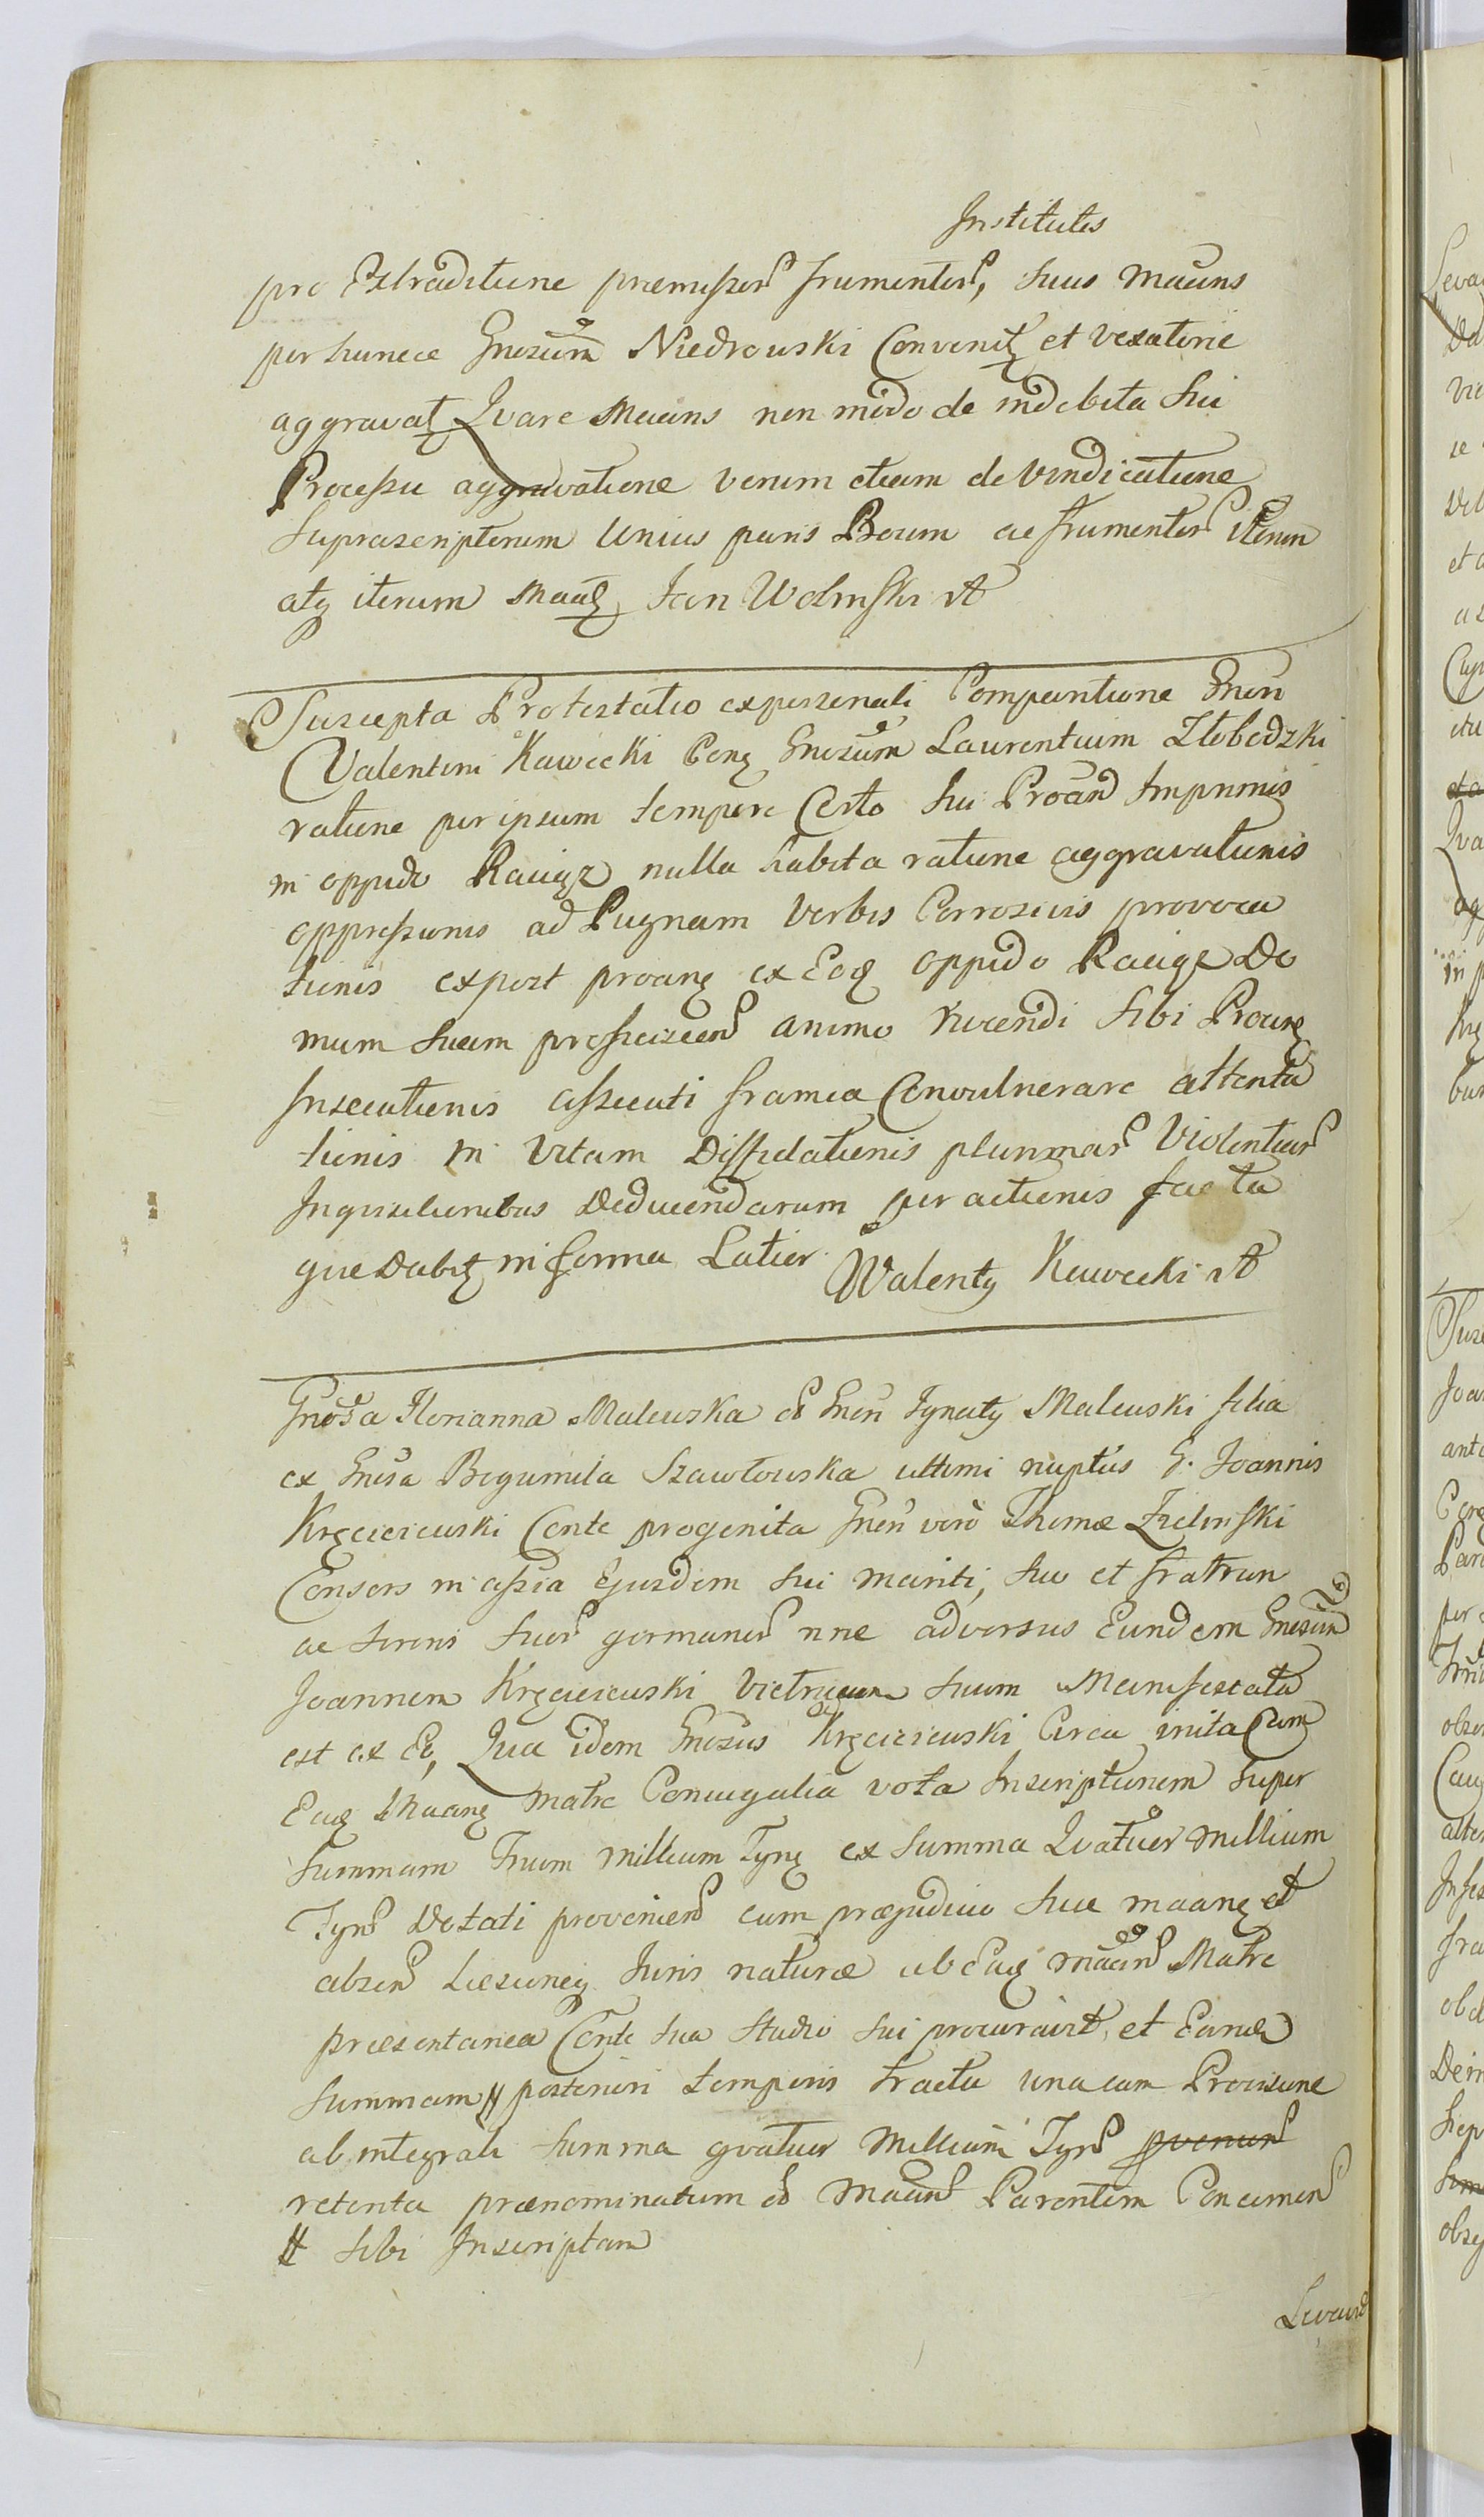 Institutis
pro Extraditione premissor frumentor, suus Maans
per hunce Gnosum Niedrowski Convenit et vexatorie
aggravat Qvare Maans non modo de indebita sui
Processu aggravatione verum etiam de vindicatione
suprascriptorum Unius paris Boum ac frumentor iterum
atq iterum Maat Jan Wolinski
Suscepta Protestatio ex personali Comparitione Gnen
Valentini Kawecki Cong Gnosum Laurentium Złobodzki
ratione per ipsum tempore Certo sui Proan Imprimis
in oppido Raciąż nulla habita ratione aggravationis
oppressionis ad Pugnam Verbis Corrosivis provoca
tionis expost proang ex Eoq oppido Raciąż Do
mum suam proficiscen animo nocendi sibi Proang
Insecutionis assecuti framea Convulnerare attenta
tionis in Vitam Diffidationis plurimar Violentiar
Inquisitionibus Deducendarum peractionis facta
que Dabit in forma Latior. Walenty Kawecki
Gnosa Florianna Malewska olim Gnen Ignaty Malewski filia
ex Gnosa Bogumila Szawłowska ultimi nuptus G. Joannis
Kręciejewski Conte progenita Gnen vero Thomæ Zielinski
Consors in assia Ejusdem sui mariti, suo et fratrum
ac sororis suor germanor nne adversus Eundem Gnosum
Joannem Kręciejewski Victricum suum Manifestata
est ex Eo, Qua idem Gnosus Kręciejewski Circa inita Cum
Eaq Maang Matre Coniugalia vota Inscriptionem super
Summam Trium millium Tyng ex Summa Qvatuor Millium
Tynf Dotali provenien cum præjudicio suæ maang et
absen Læsioneq Juris naturæ ab Eaq maan Matre
præsentanea Conte sua Studio sui procuravit, et Eanq
Summam # posterioris temporis tractu una cum Provisione
ab integrali summa qvatuor Millium Tynf provenien
retenta prænominatum olim Maan Parentem Concernen
# sibi Inscriptam